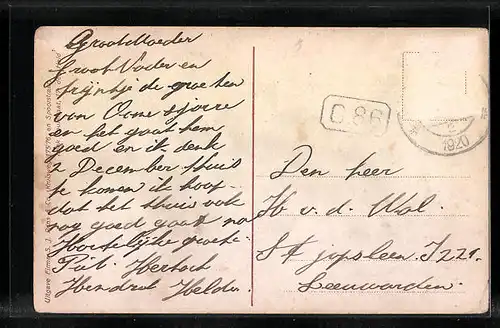 Groot Moeder
Groot Vader en
frijntje de groeten
van Oome sjorre
en het gaat hem
goed en ik denk
2 December thuis
te komen ik hoop
dat het thuis ook
nog goed gaat na
Hartelijke groete
Piet Hertoch
Hendrik Helder
C.86
1920
Den heer
H. v. d. Wal.
St jopsleen 122
Leeuwarden.